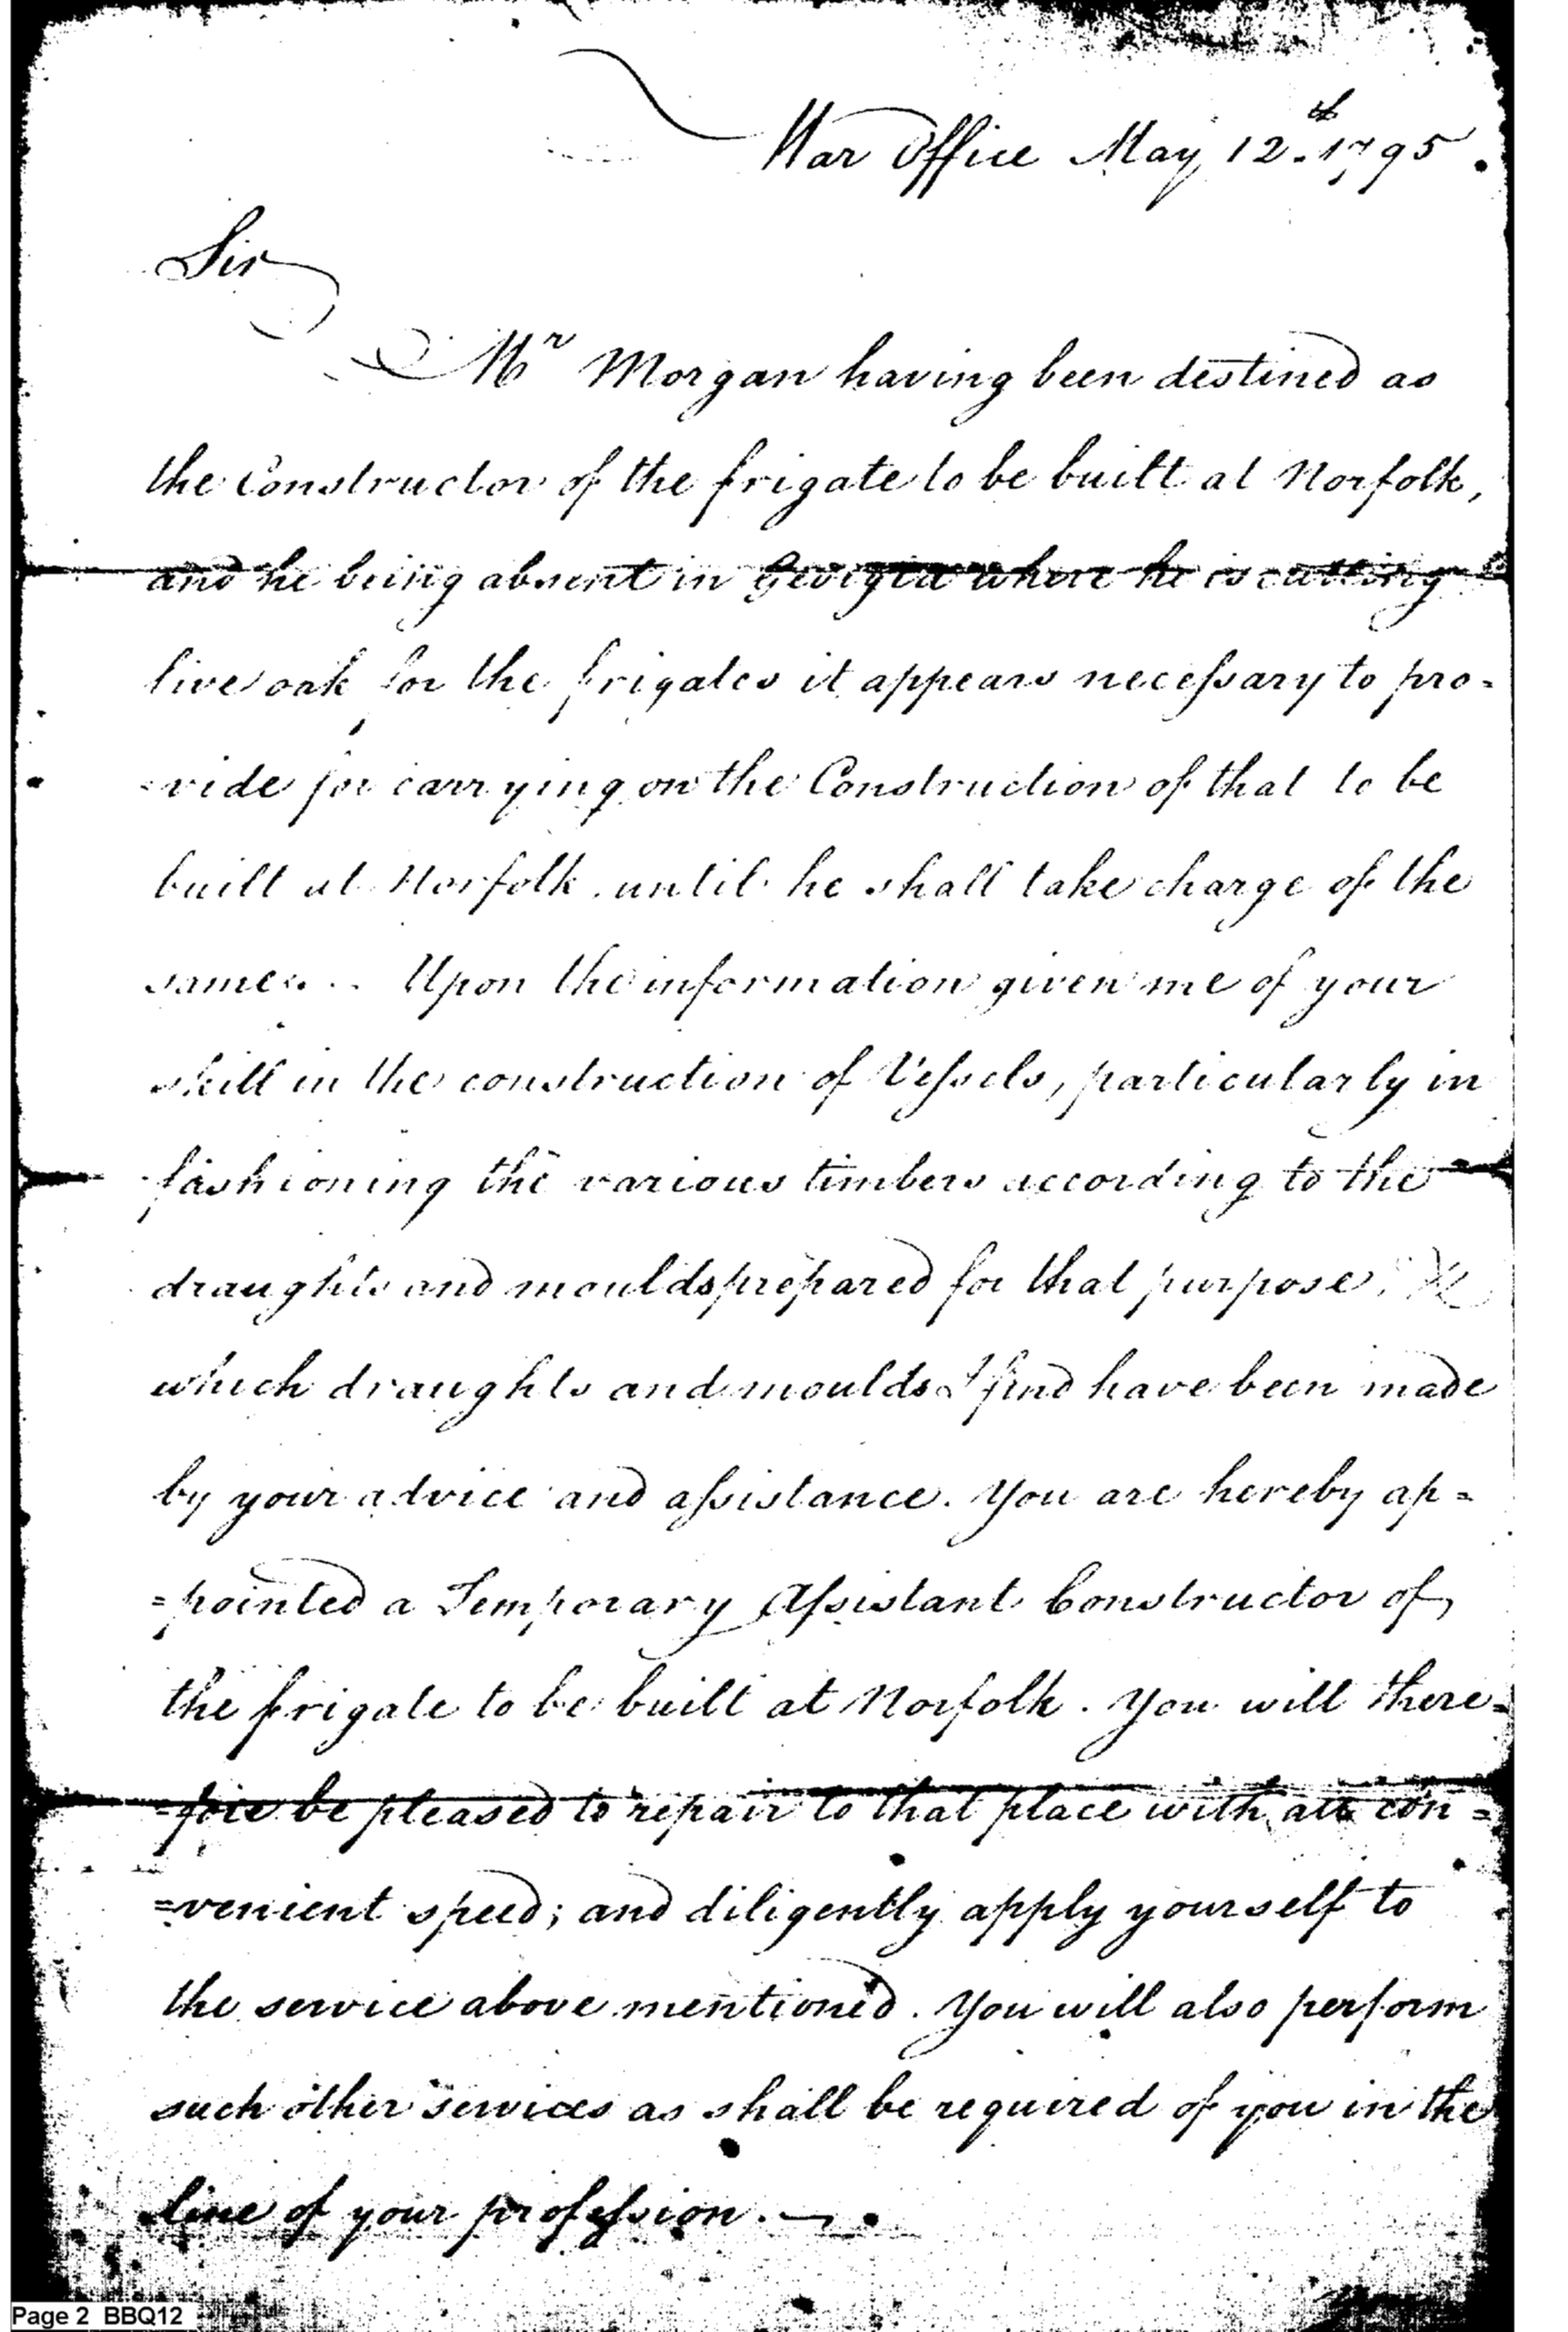 War Office May 12th 1795.
Sir
Mr Morgan having been destined as
the Constructor of the frigate to be built at Norfolk,
and he being absent in Georgia where he is cutting
live oak for the frigates it appears necessary to pro=
=vide for carrying on the Construction of that to be
built at Norfolk until he shall take charge of the
same. Upon the information given me of your
skill in the construction of Vessels, particularly in
fashioning the various timbers according to the
draughts and moulds prepared for that purpose,
which draughts and moulds I find have been made
by your advice and assistance. You are hereby ap=
=pointed a Temporary Assistant Constructor of
the frigate to be built at Norfolk. You will there=
=fore be pleased to repair to that place with all con=
=venient speed; and diligently apply yourself to
the service above mentioned. You will also perform
such other services as shall be required of you in the
line of your profession.
Page 2 BBQ12